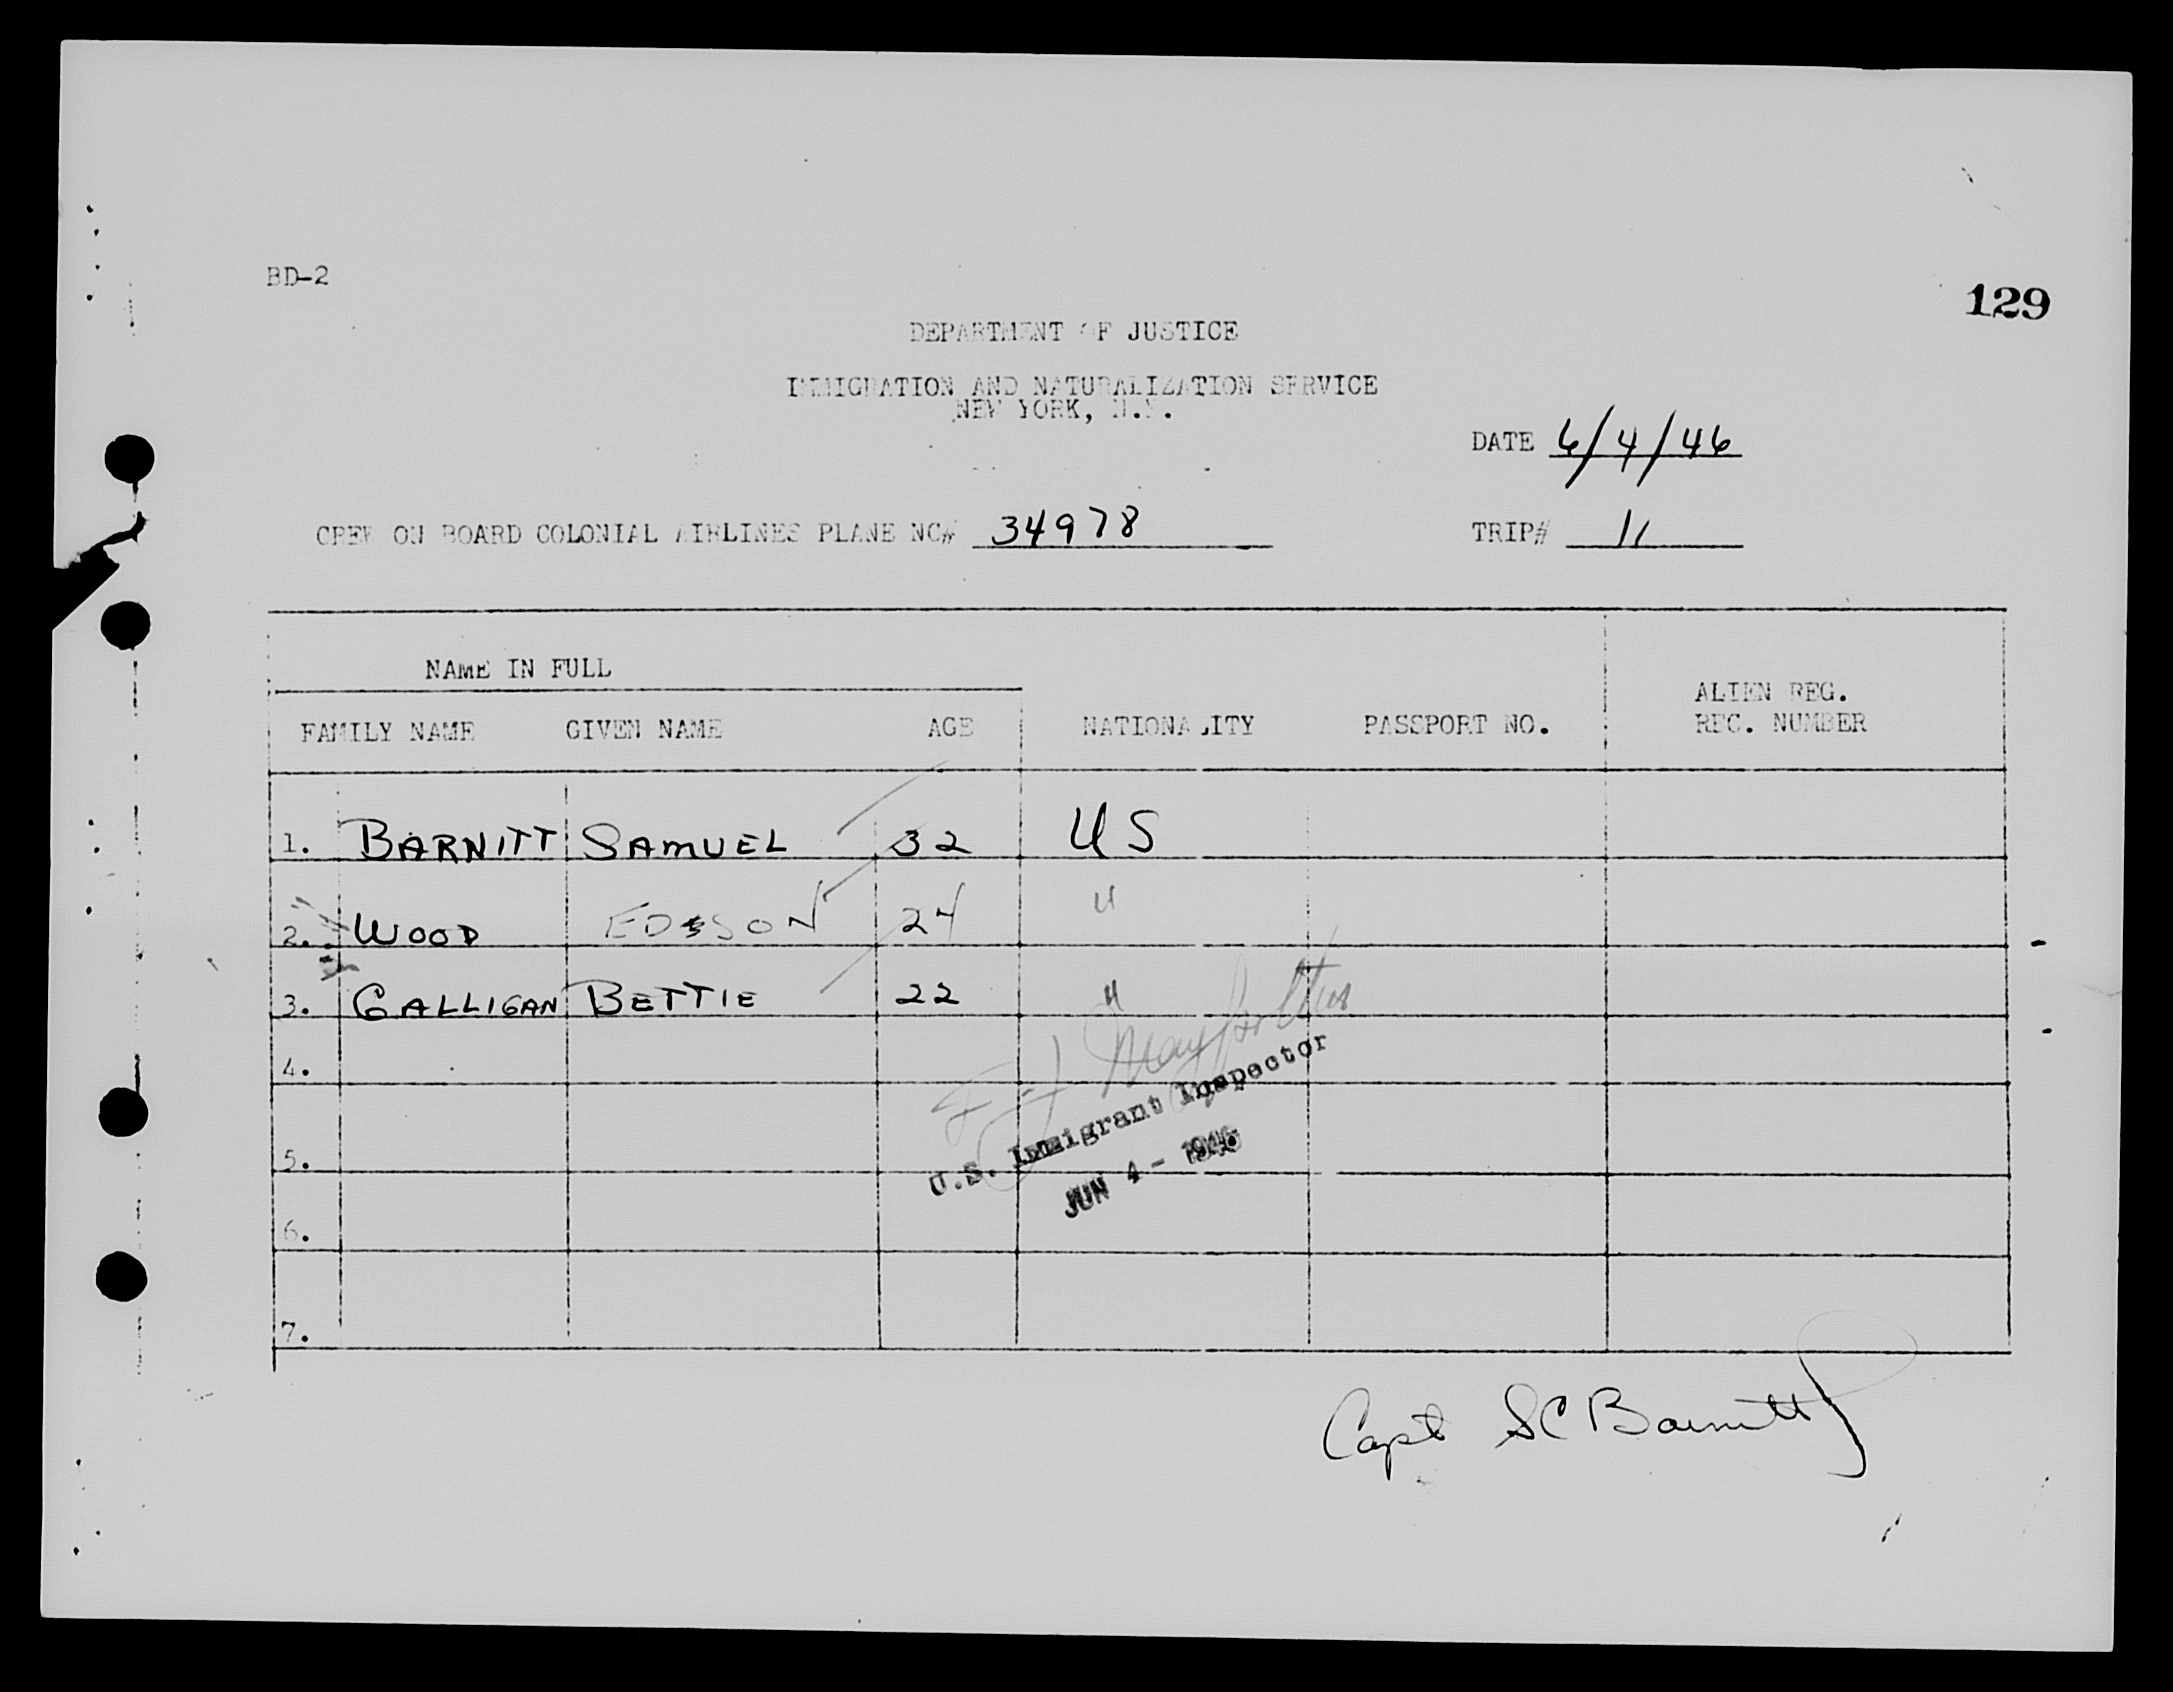 BD-2
129
DEPARTMENT OF JUSTICE
IMMIGRATION AND NATURALIZATION SERVICE
NEW YORK, N.Y.
DATE 6/4/46
CREW ON BOARD COLONIAL AIRLINES PLANE NC# 34978 TRIP# 11
NAME IN FULL
FAMILY NAME GIVEN NAME AGE NATIONALITY PASSPORT NO. ALIEN REG. REC. NUMBER
1. BARNITT SAMUEL 32 US
2. WOOD EDSON 24 "
3. GALLIGAN BETTIE 22 "
4.
U.S. Immigrant Inspector
5.
JUN 4 - 1946
6.
7.
Capt SC Barnitt